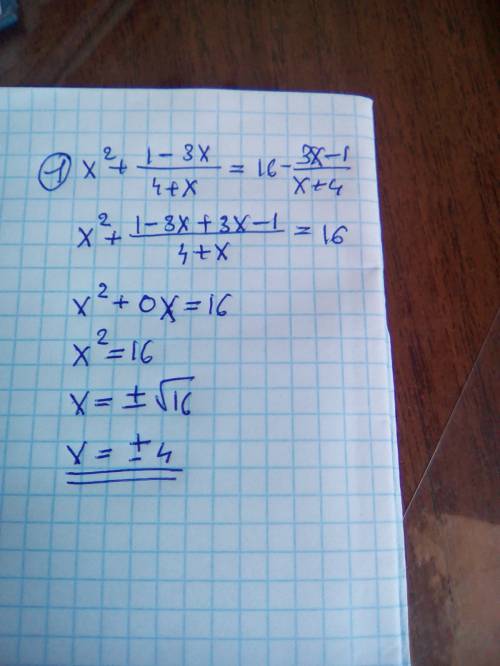 ① x² + (1 - 3x)/(4 + x) = 16 - (3x - 1)/(x + 4)
x² + (1 - 3x + 3x - 1)/(4 + x) = 16
x² + 0x = 16
x² = 16
x = ± √16
x = ± 4